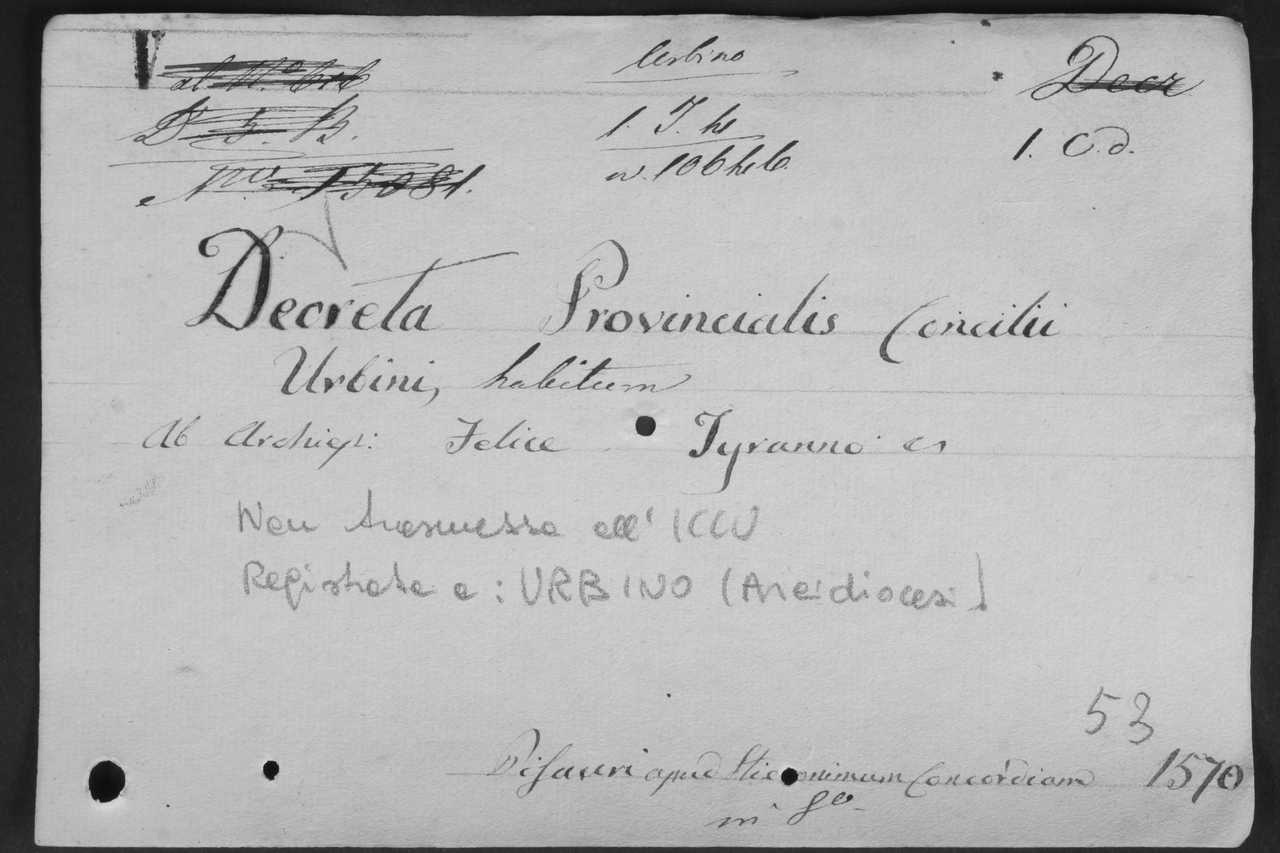 Urbino
Decr
D. 5. B.
1. C.d.
N.ro 15081.
Decreta Provincialis Concilii
Urbini, habitum
Ab Archiep: Felice Tyranno
Non trasmessa all'ICCU
Registrata a: URBINO (Arcidiocesi)
53
Pisauri apud Hieronimum Concordiam 1570
in 8º